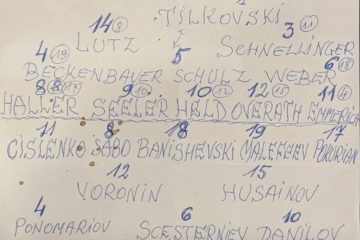 1
TILKOVSKI
14 5 3 11
LUTZ SCHNELLINGER
4 19 5 6 15
BECKENBAUER SCHULZ WEBER
8 8 17 9 10 10 12 12 15 11 4
HALLER SEELER HELD OVERATH EMMERICH
11 8 18 19 17
CISLENKO SABO BANISHEVSKI MALEFEEV POKURIAN
12 15
VORONIN HUSAINOV
4 6 10
PONOMARIOV SCESTERNIEV DANILOV